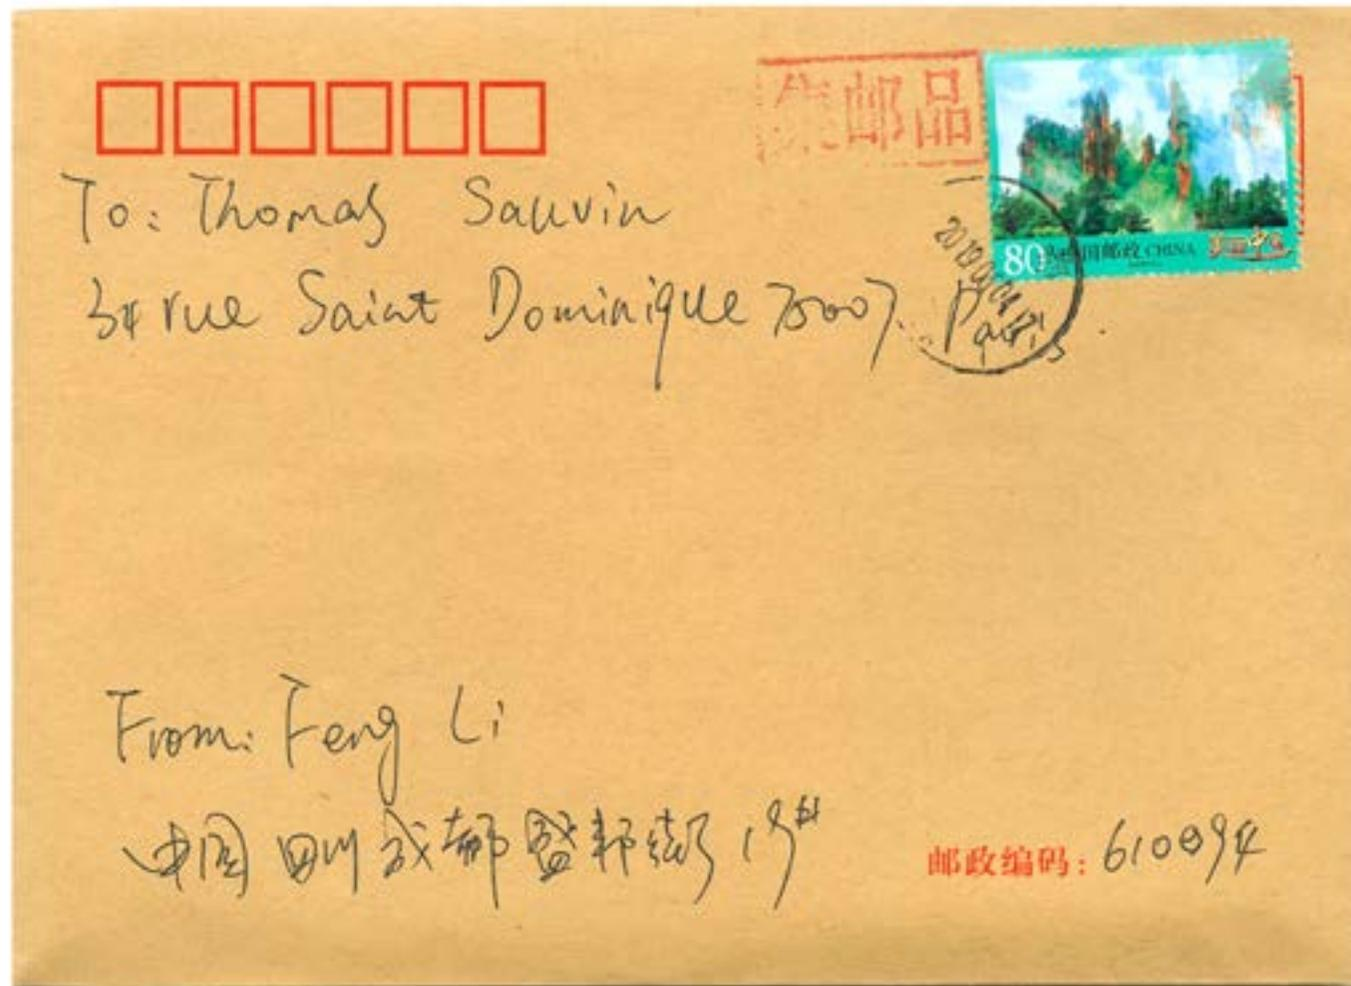 集邮品
80分 中国邮政 CHINA
美丽中国
To: Thomas Sauvin
34 rue Saint Dominique 75007. Paris.
From: Feng Li
中国 四川 成都 盛邦街 1号
邮政编码: 610094